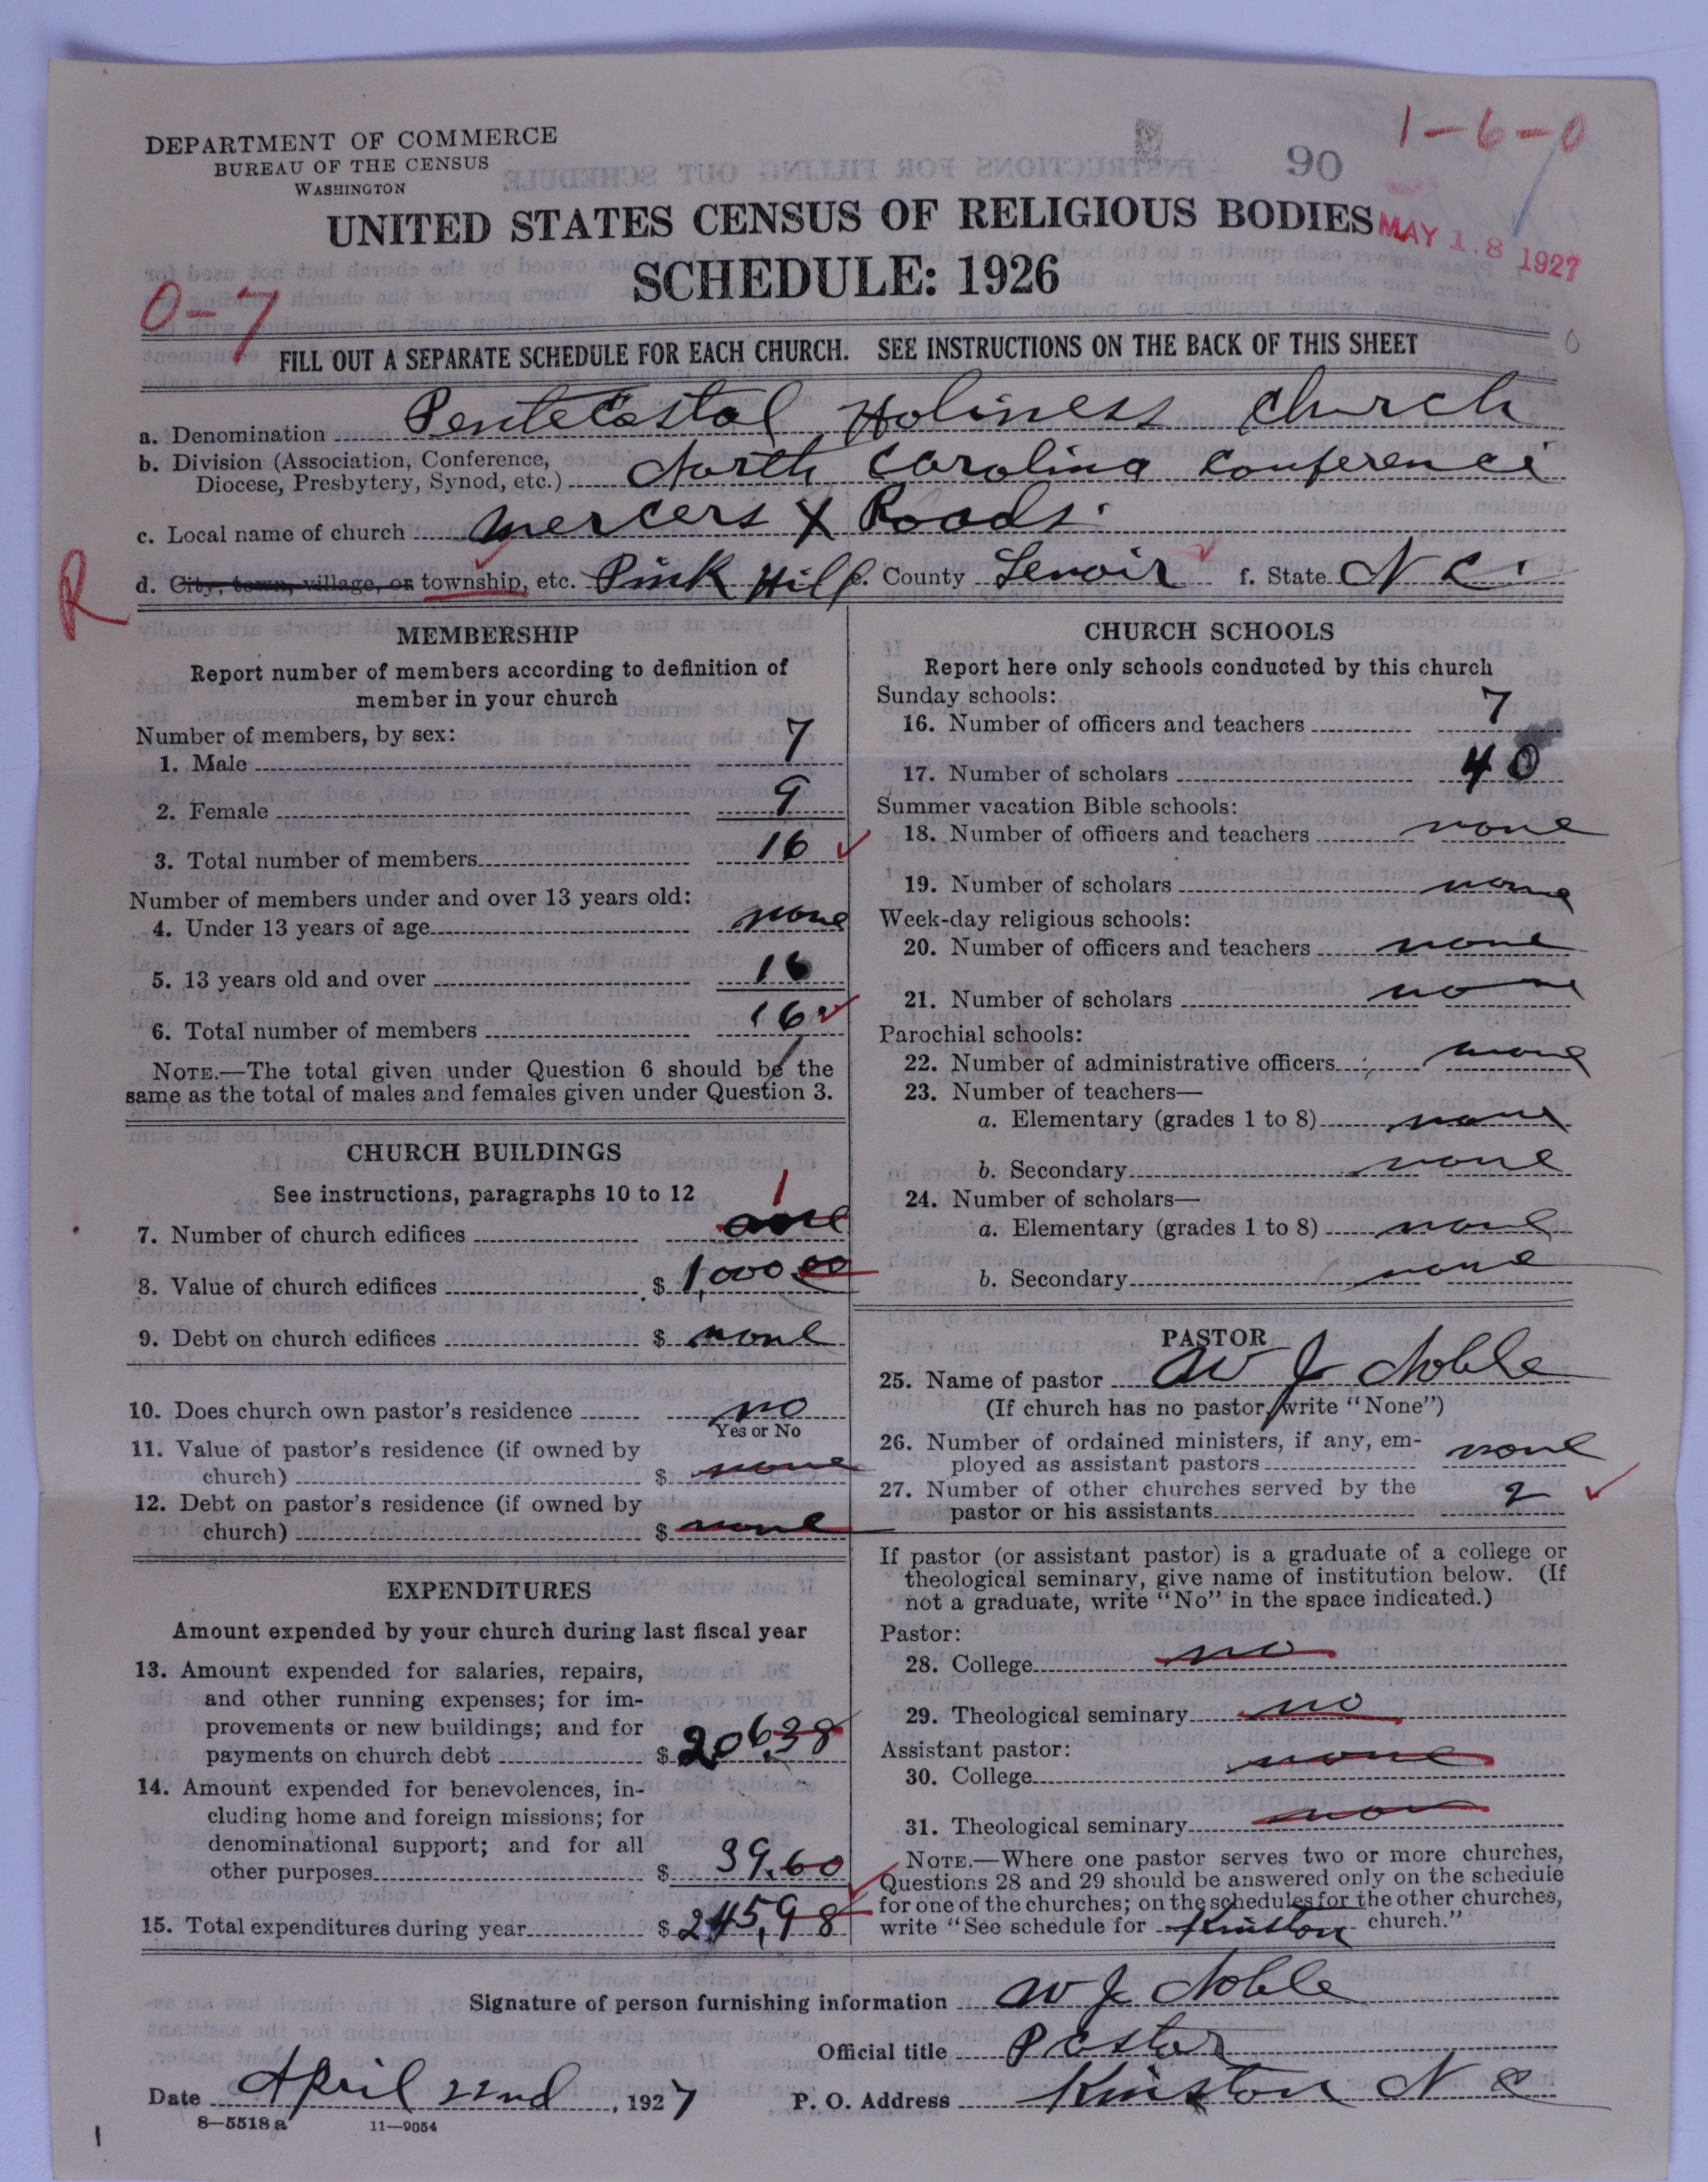 DEPARTMENT OF COMMERCE
BUREAU OF THE CENSUS
WASHINGTON
90
1-6-0
UNITED STATES CENSUS OF RELIGIOUS BODIES
MAY 18 1927
SCHEDULE: 1926
0-7
FILL OUT A SEPARATE SCHEDULE FOR EACH CHURCH. SEE INSTRUCTIONS ON THE BACK OF THIS SHEET
a. Denomination Pentecostal Holiness Church
b. Division (Association, Conference, Diocese, Presbytery, Synod, etc.) North Carolina Conference
c. Local name of church Mercers X Roads.
R
d. City, town, village, or township, etc. Pink Hill e. County Lenoir f. State N C.
MEMBERSHIP
Report number of members according to definition of
member in your church
Number of members, by sex:
1. Male 7
2. Female 9
3. Total number of members 16
Number of members under and over 13 years old:
4. Under 13 years of age none
5. 13 years old and over 16
6. Total number of members 16
NOTE.—The total given under Question 6 should be the
same as the total of males and females given under Question 3.
CHURCH BUILDINGS
See instructions, paragraphs 10 to 12
1
7. Number of church edifices one
8. Value of church edifices $ 1,000.00
9. Debt on church edifices $ none
10. Does church own pastor's residence no
Yes or No
11. Value of pastor's residence (if owned by
church) $ none
12. Debt on pastor's residence (if owned by
church) $ none
EXPENDITURES
Amount expended by your church during last fiscal year
13. Amount expended for salaries, repairs,
and other running expenses; for im-
provements or new buildings; and for
payments on church debt $ 206.38
14. Amount expended for benevolences, in-
cluding home and foreign missions; for
denominational support; and for all
other purposes $ 39.60
15. Total expenditures during year $ 245.98
CHURCH SCHOOLS
Report here only schools conducted by this church
Sunday schools:
16. Number of officers and teachers 7
17. Number of scholars 40
Summer vacation Bible schools:
18. Number of officers and teachers none
19. Number of scholars none
Week-day religious schools:
20. Number of officers and teachers none
21. Number of scholars none
Parochial schools:
22. Number of administrative officers none
23. Number of teachers—
a. Elementary (grades 1 to 8) none
b. Secondary none
24. Number of scholars—
a. Elementary (grades 1 to 8) none
b. Secondary none
PASTOR
25. Name of pastor W J Noble
(If church has no pastor, write "None")
26. Number of ordained ministers, if any, em-
ployed as assistant pastors none
27. Number of other churches served by the
pastor or his assistants 2
If pastor (or assistant pastor) is a graduate of a college or
theological seminary, give name of institution below. (If
not a graduate, write "No" in the space indicated.)
Pastor:
28. College no
29. Theological seminary no
Assistant pastor:
30. College none
31. Theological seminary non
NOTE.—Where one pastor serves two or more churches,
Questions 28 and 29 should be answered only on the schedule
for one of the churches; on the schedules for the other churches,
write "See schedule for Kinston church."
Signature of person furnishing information W J Noble
Official title Pastor
Date April 22nd, 1927 P. O. Address Kinston N C
8-5518a 11-9054